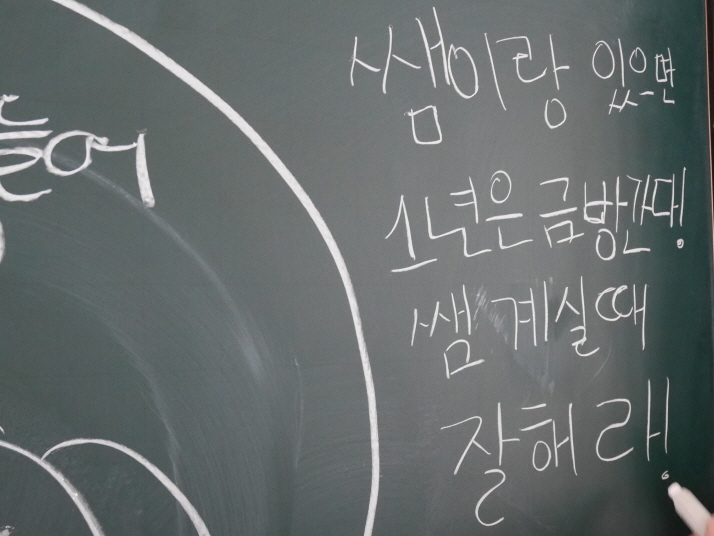 쌤이랑 있으면
1년은 금방간대!
쌤 계실때
잘해라!